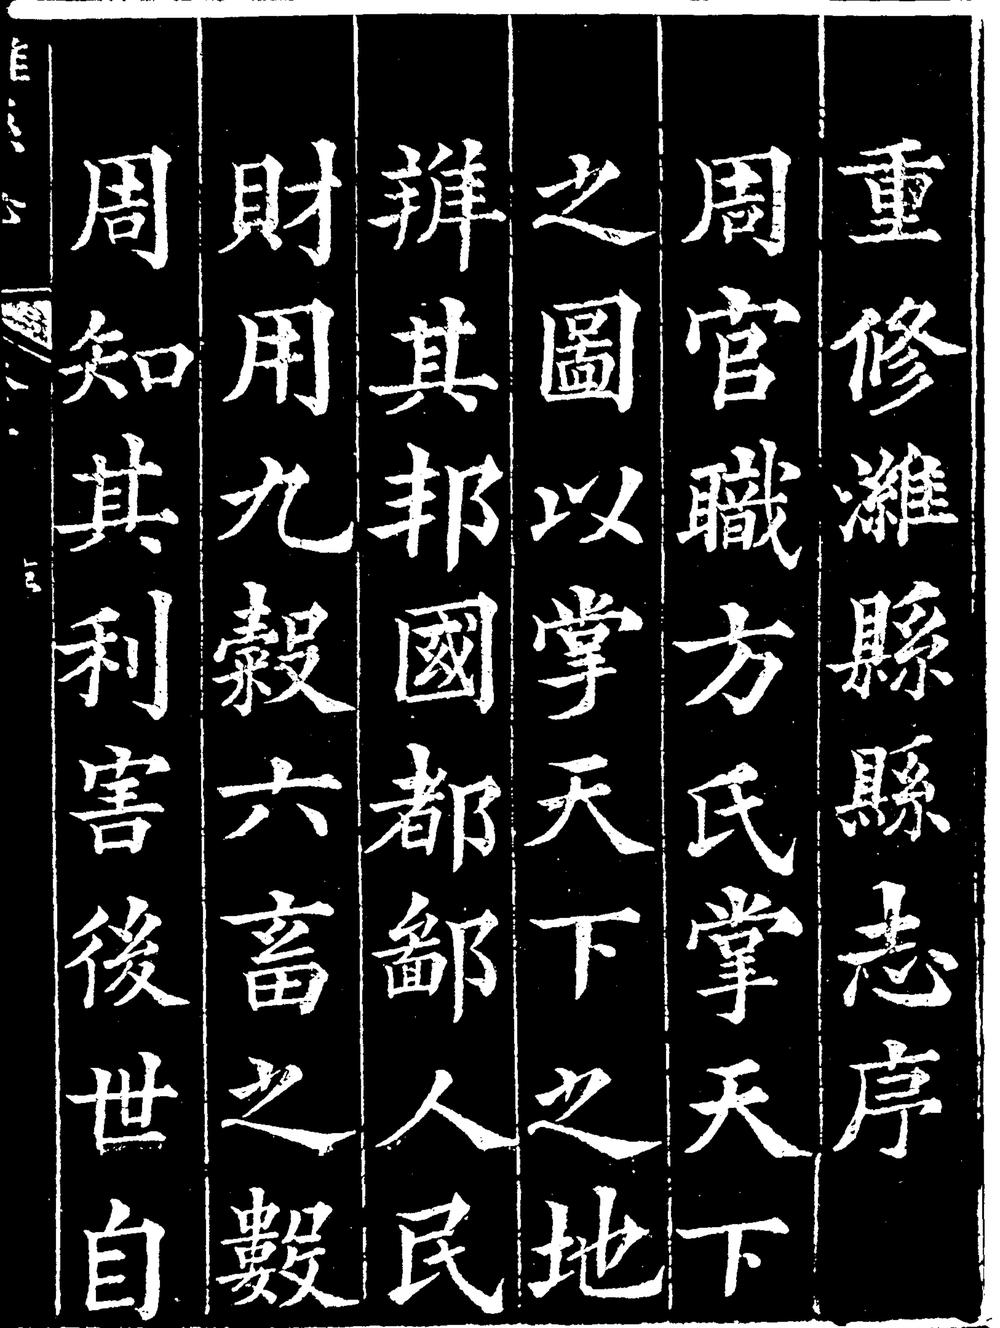 重修濰縣縣志序
周官職方氏掌天下
之圖以掌天下之地
辨其邦國都鄙人民
財用九穀六畜之數
周知其利害後世自